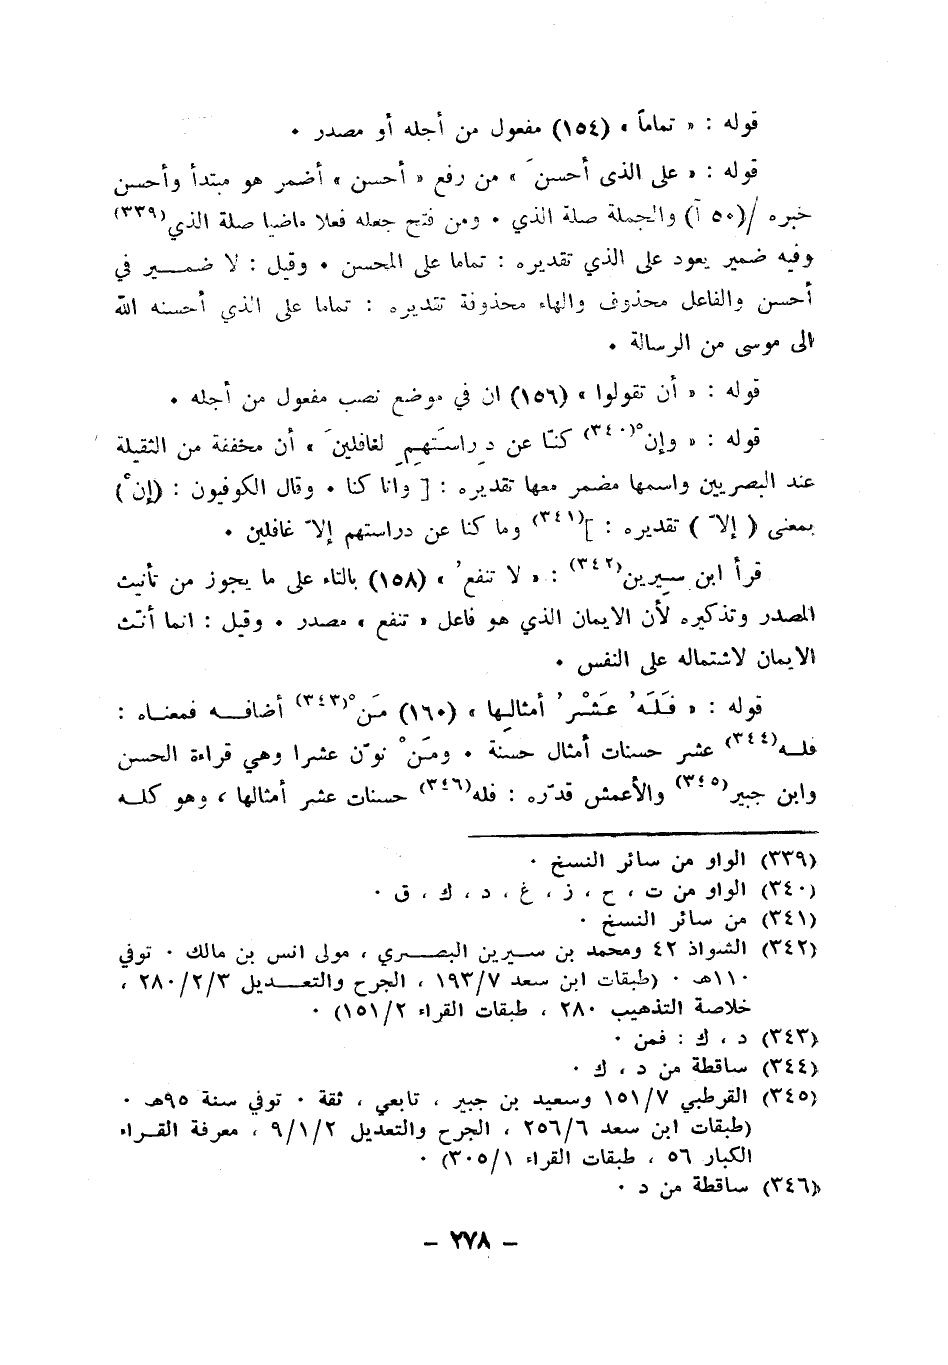 قوله : « تماماً » (١٥٤) مفعول من أجله أو مصدر ٠
قوله : « على الذى أحسنَ » من رفع « أحسن » أضمر هو مبتدأ وأحسن
خبره /(٥٠ أ) والجملة صلة الذي ٠ ومن فتح جعله فعلا ماضيا صلة الذي(٣٣٩)
وفيه ضمير يعود على الذي تقديره : تماما على المحسن ٠ وقيل : لا ضمير في
أحسن والفاعل محذوف والهاء محذوفة تقديره : تماما على الذي أحسنه الله
الى موسى من الرسالة ٠
قوله : « أن تقولوا » (١٥٦) ان في موضع نصب مفعول من أجله ٠
قوله : « وإنْ(٣٤٠) كنّا عن دِراستَهِم لغافلينَ » أن مخففة من الثقيلة
عند البصريين واسمها مضمر معها تقديره : [ وانا كنا ٠ وقال الكوفيون : (إنْ)
بمعنى ( إلاّ ) تقديره : ](٣٤١) وما كنا عن دراستهم إلاّ غافلين ٠
قرأ ابن سيرين(٣٤٢) : « لا تنفعُ » (١٥٨) بالتاء على ما يجوز من تأنيث
المصدر وتذكيره لأن الايمان الذي هو فاعل « تنفع » مصدر ٠ وقيل : انما أنّث
الايمان لاشتماله على النفس ٠
قوله : « فَلَهُ عَشْرُ أمثالِها » (١٦٠) مَنْ(٣٤٣) أضافه فمعناه :
فله(٣٤٤) عشر حسنات أمثال حسنة ٠ ومَنْ نوّن عشرا وهي قراءة الحسن
وابن جبير(٣٤٥) والأعمش قدّره : فله(٣٤٦) حسنات عشر أمثالها ، وهو كله
(٣٣٩) الواو من سائر النسخ ٠
(٣٤٠) الواو من ت ، ح ، ز ، غ ، د ، ك ، ق ٠
(٣٤١) من سائر النسخ ٠
(٣٤٢) الشواذ ٤٢ ومحمد بن سيرين البصري ، مولى انس بن مالك ٠ توفي
١١٠هـ ٠ (طبقات ابن سعد ١٩٣/٧ ، الجرح والتعديل ٢٨٠/٢/٣ ،
خلاصة التذهيب ٢٨٠ ، طبقات القراء ١٥١/٢) ٠
(٣٤٣) د ، ك : فمن ٠
(٣٤٤) ساقطة من د ، ك ٠
(٣٤٥) القرطبي ١٥١/٧ وسعيد بن جبير ، تابعي ، ثقة ٠ توفي سنة ٩٥هـ ٠
(طبقات ابن سعد ٢٥٦/٦ ، الجرح والتعديل ٩/١/٢ ، معرفة القراء
الكبار ٥٦ ، طبقات القراء ٣٠٥/١) ٠
(٣٤٦) ساقطة من د ٠
– ٢٧٨ –